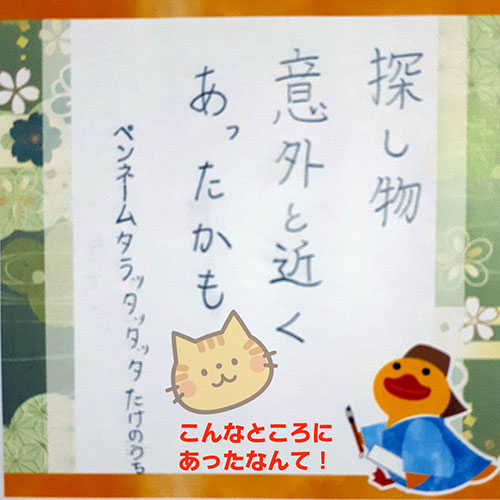 探し物
意外と近く
あったかも
ペンネームタラッタッタッタたけのうち
こんなところに
あったなんて！